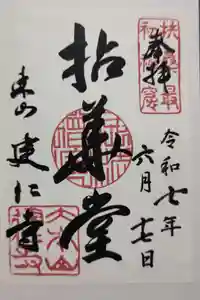 奉拝
令和七年
六月十七日
拈華堂
東山 建仁寺